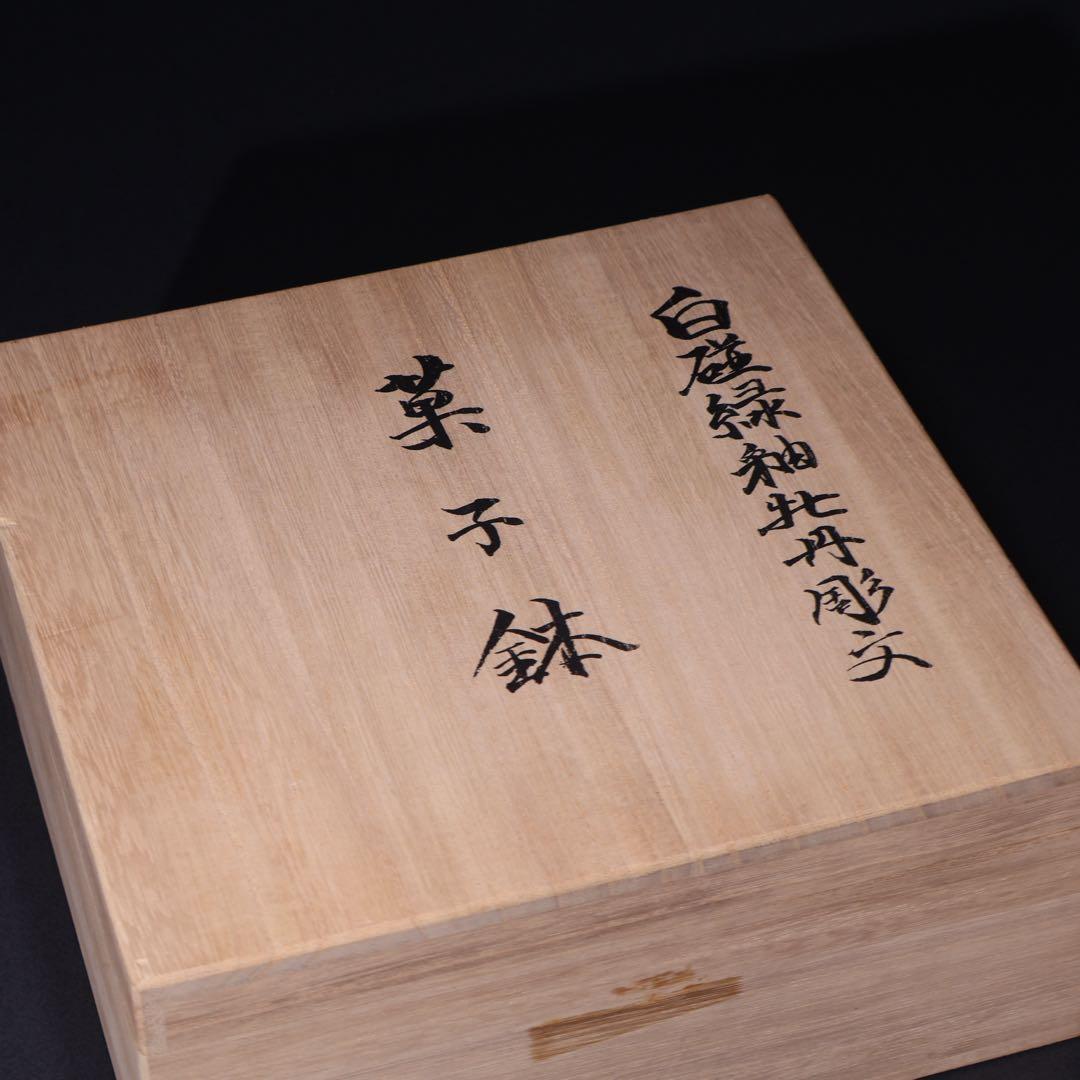 白磁緑釉牡丹彫文
菓子鉢